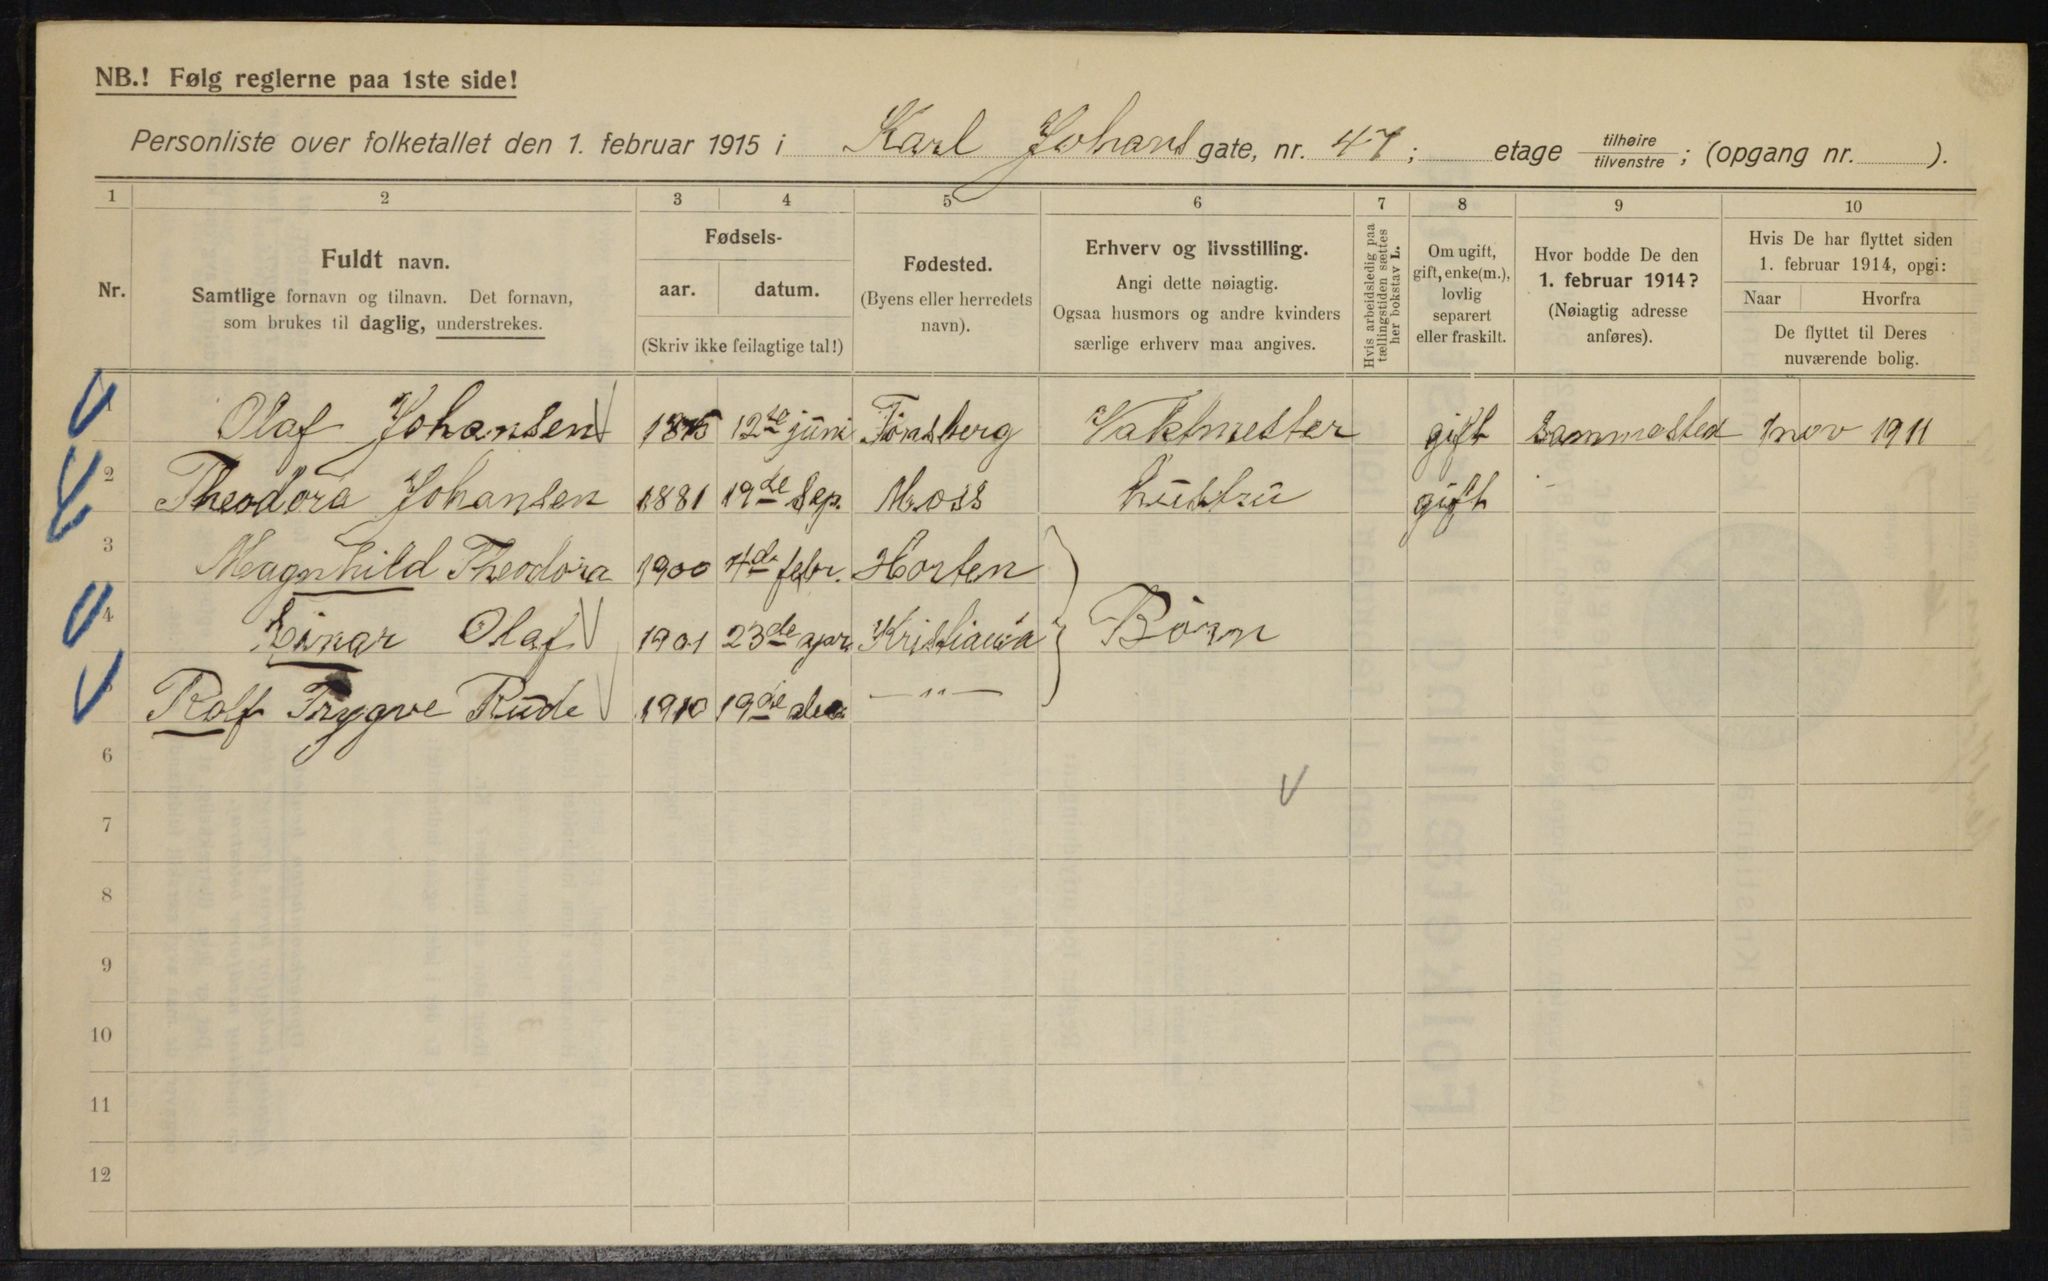 NB.! Følg reglerne paa 1ste side!
Personliste over folketallet den 1. februar 1915 i Karl Johans gate, nr. 47; etage tilhøire/tilvenstre; (opgang nr. ).
1 2 3 4 5 6 7 8 9 10
Nr.
Fuldt navn.
Samtlige fornavn og tilnavn. Det fornavn,
som brukes til daglig, understrekes.
Fødsels-
aar. datum.
(Skriv ikke feilagtige tal!)
Fødested.
(Byens eller herredets
navn).
Erhverv og livsstilling.
Angi dette nøiagtig.
Ogsaa husmors og andre kvinders
særlige erhverv maa angives.
Hvis arbeidsledig paa
tællingstiden sættes
her bokstav L.
Om ugift,
gift, enke(m.),
lovlig
separert
eller fraskilt.
Hvor bodde De den
1. februar 1914?
(Nøiagtig adresse
anføres).
Hvis De har flyttet siden
1. februar 1914, opgi:
Naar Hvorfra
De flyttet til Deres
nuværende bolig.
1 Olaf Johansen 1875 12te juni Tönsberg Vaktmester gift sammested 1 nov 1911
2 Theodora Johansen 1881 19de Sep. Moss hustru gift
3 Magnhild Theodora 1900 4de febr. Horten
4 Einar Olaf 1901 23de apr. Kristiania Börn
5 Rolf Trygve Rude 1910 19de dec —"—
6
7
8
9
10
11
12